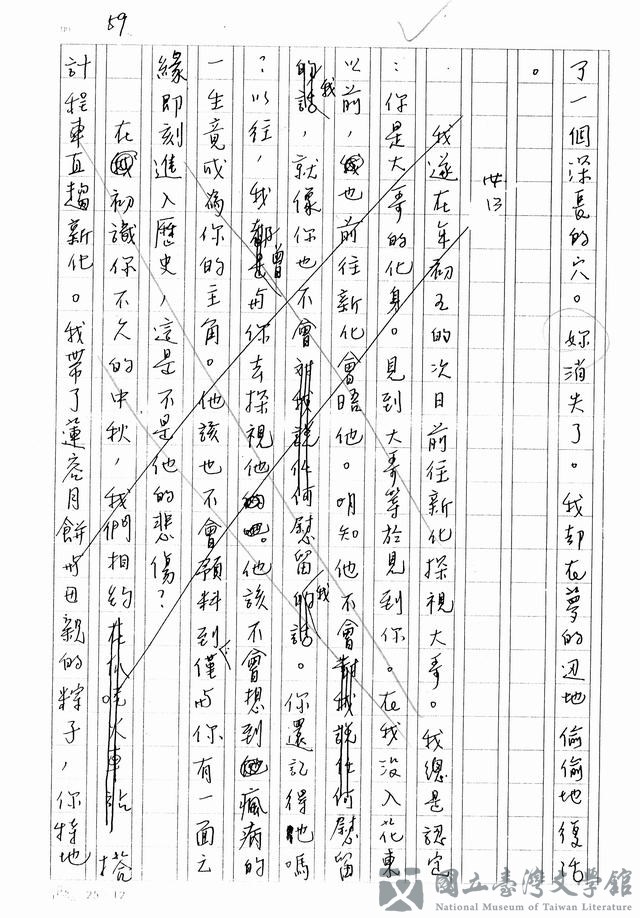 59
了一個深長的穴。妳消失了。我却在夢的边地偷偷地復活
。
廿三
我遂在年初五的次日前往新化探視大哥。我總是認定
：你是大哥的化身。見到大哥等於見到你。在我没入花東
以前，也前往新化會晤他。明知他不會對我說任何慰留
的話，就像你也不會對我說任何慰留我的話。你還記得他嗎
？以往，我曾与你去探視他。他該不會想到瘋病的
一生竟成為你的主角。他該也不會預料到僅与你有一面之
緣即刻進入歷史，這是不是他的悲傷？
在初識你不久的中秋，我們相約搭
計程車直趨新化。我帶了蓮蓉月餅与母親的粽子，你特地
25 12
國立臺灣文學館
National Museum of Taiwan Literature